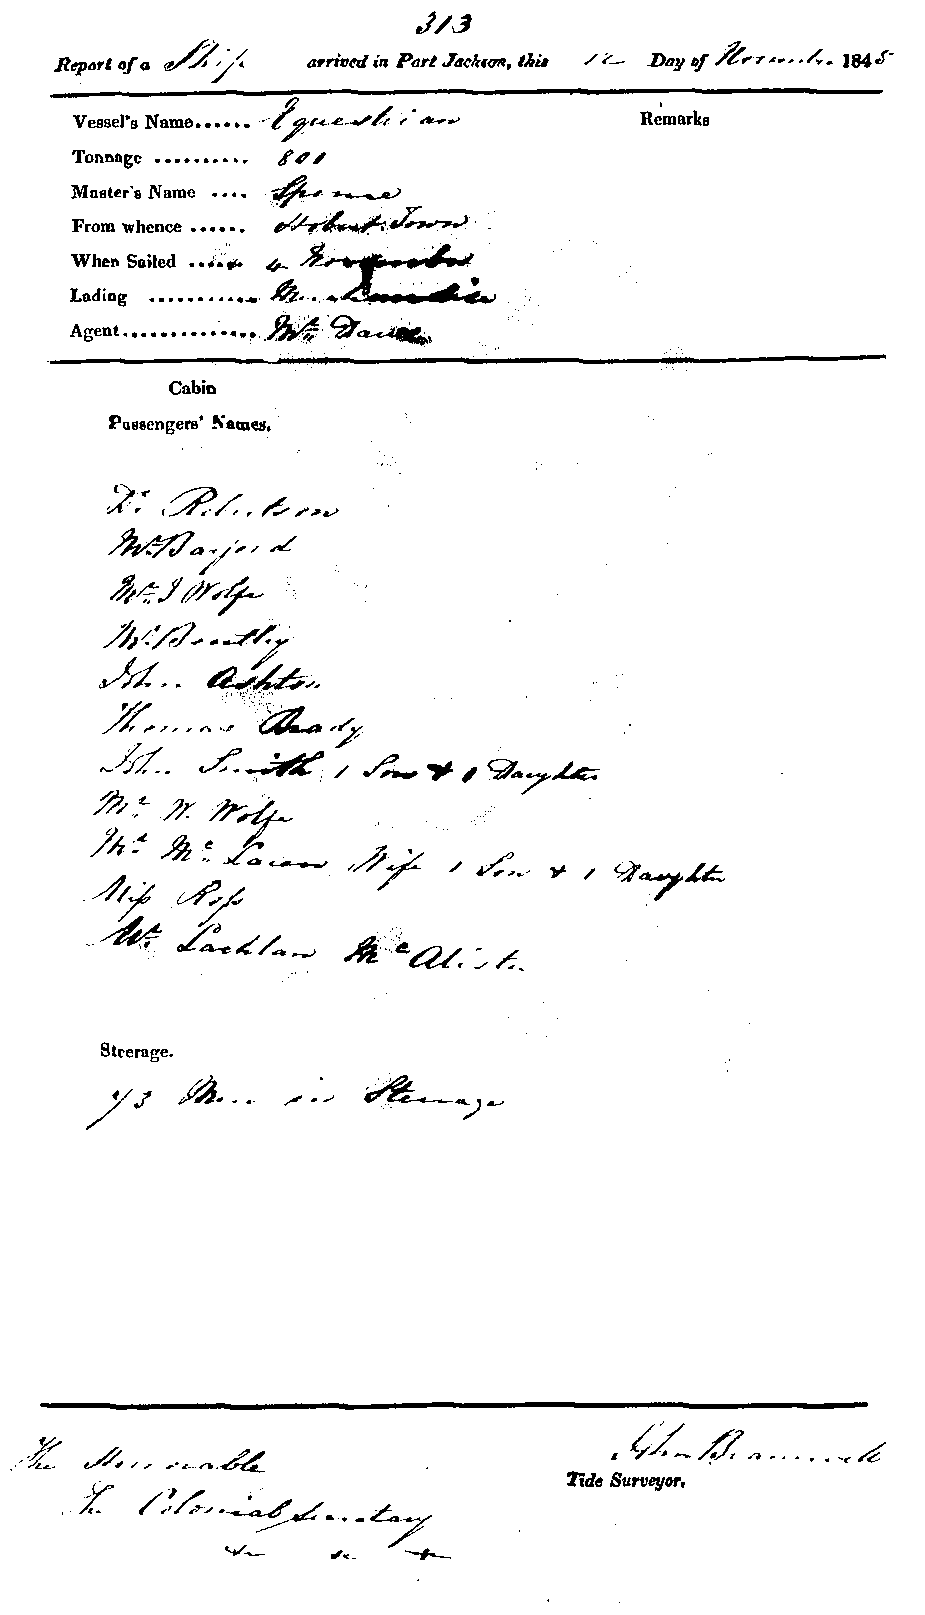 313
Report of a Ship arrived in Port Jackson, this 12 Day of November 1845
Vessel's Name...... Equestrian
Remarks
Tonnage .......... 801
Master's Name .... Spence
From whence ...... Hobart Town
When Sailed ...... 4 November
Lading ...........
Agent.............. Mr.
Cabin
Passengers' Names.
Dr Robertson
Mr. Barford
Mr. J Wolfe
Mr. Bentley
John Ashton
Thomas Brady
John Smith 1 Son & 1 Daughter
Mr. W. Wolfe
Mr. Mc. Wife 1 Son & 1 Daughter
Miss Ross
Mr. Lachlan Mc Alister
Steerage.
73 Men in Steerage
The Honorable
John
Tide Surveyor.
The Colonial Secretary
&c &c &c